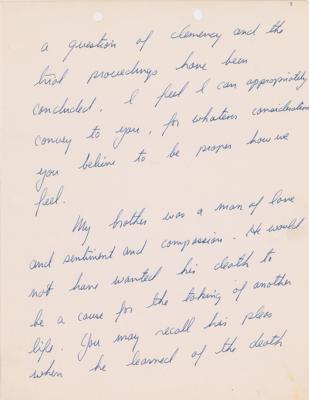 a question of clemency and the
trial proceedings have been
concluded. I feel I can appropriately
convey to you, for whatever consideration
you believe to be proper how we
feel.
My brother was a man of love
and sentiment and compassion. He would
not have wanted his death to
be a cause for the taking of another
life. You may recall his pleas
when he learned of the death